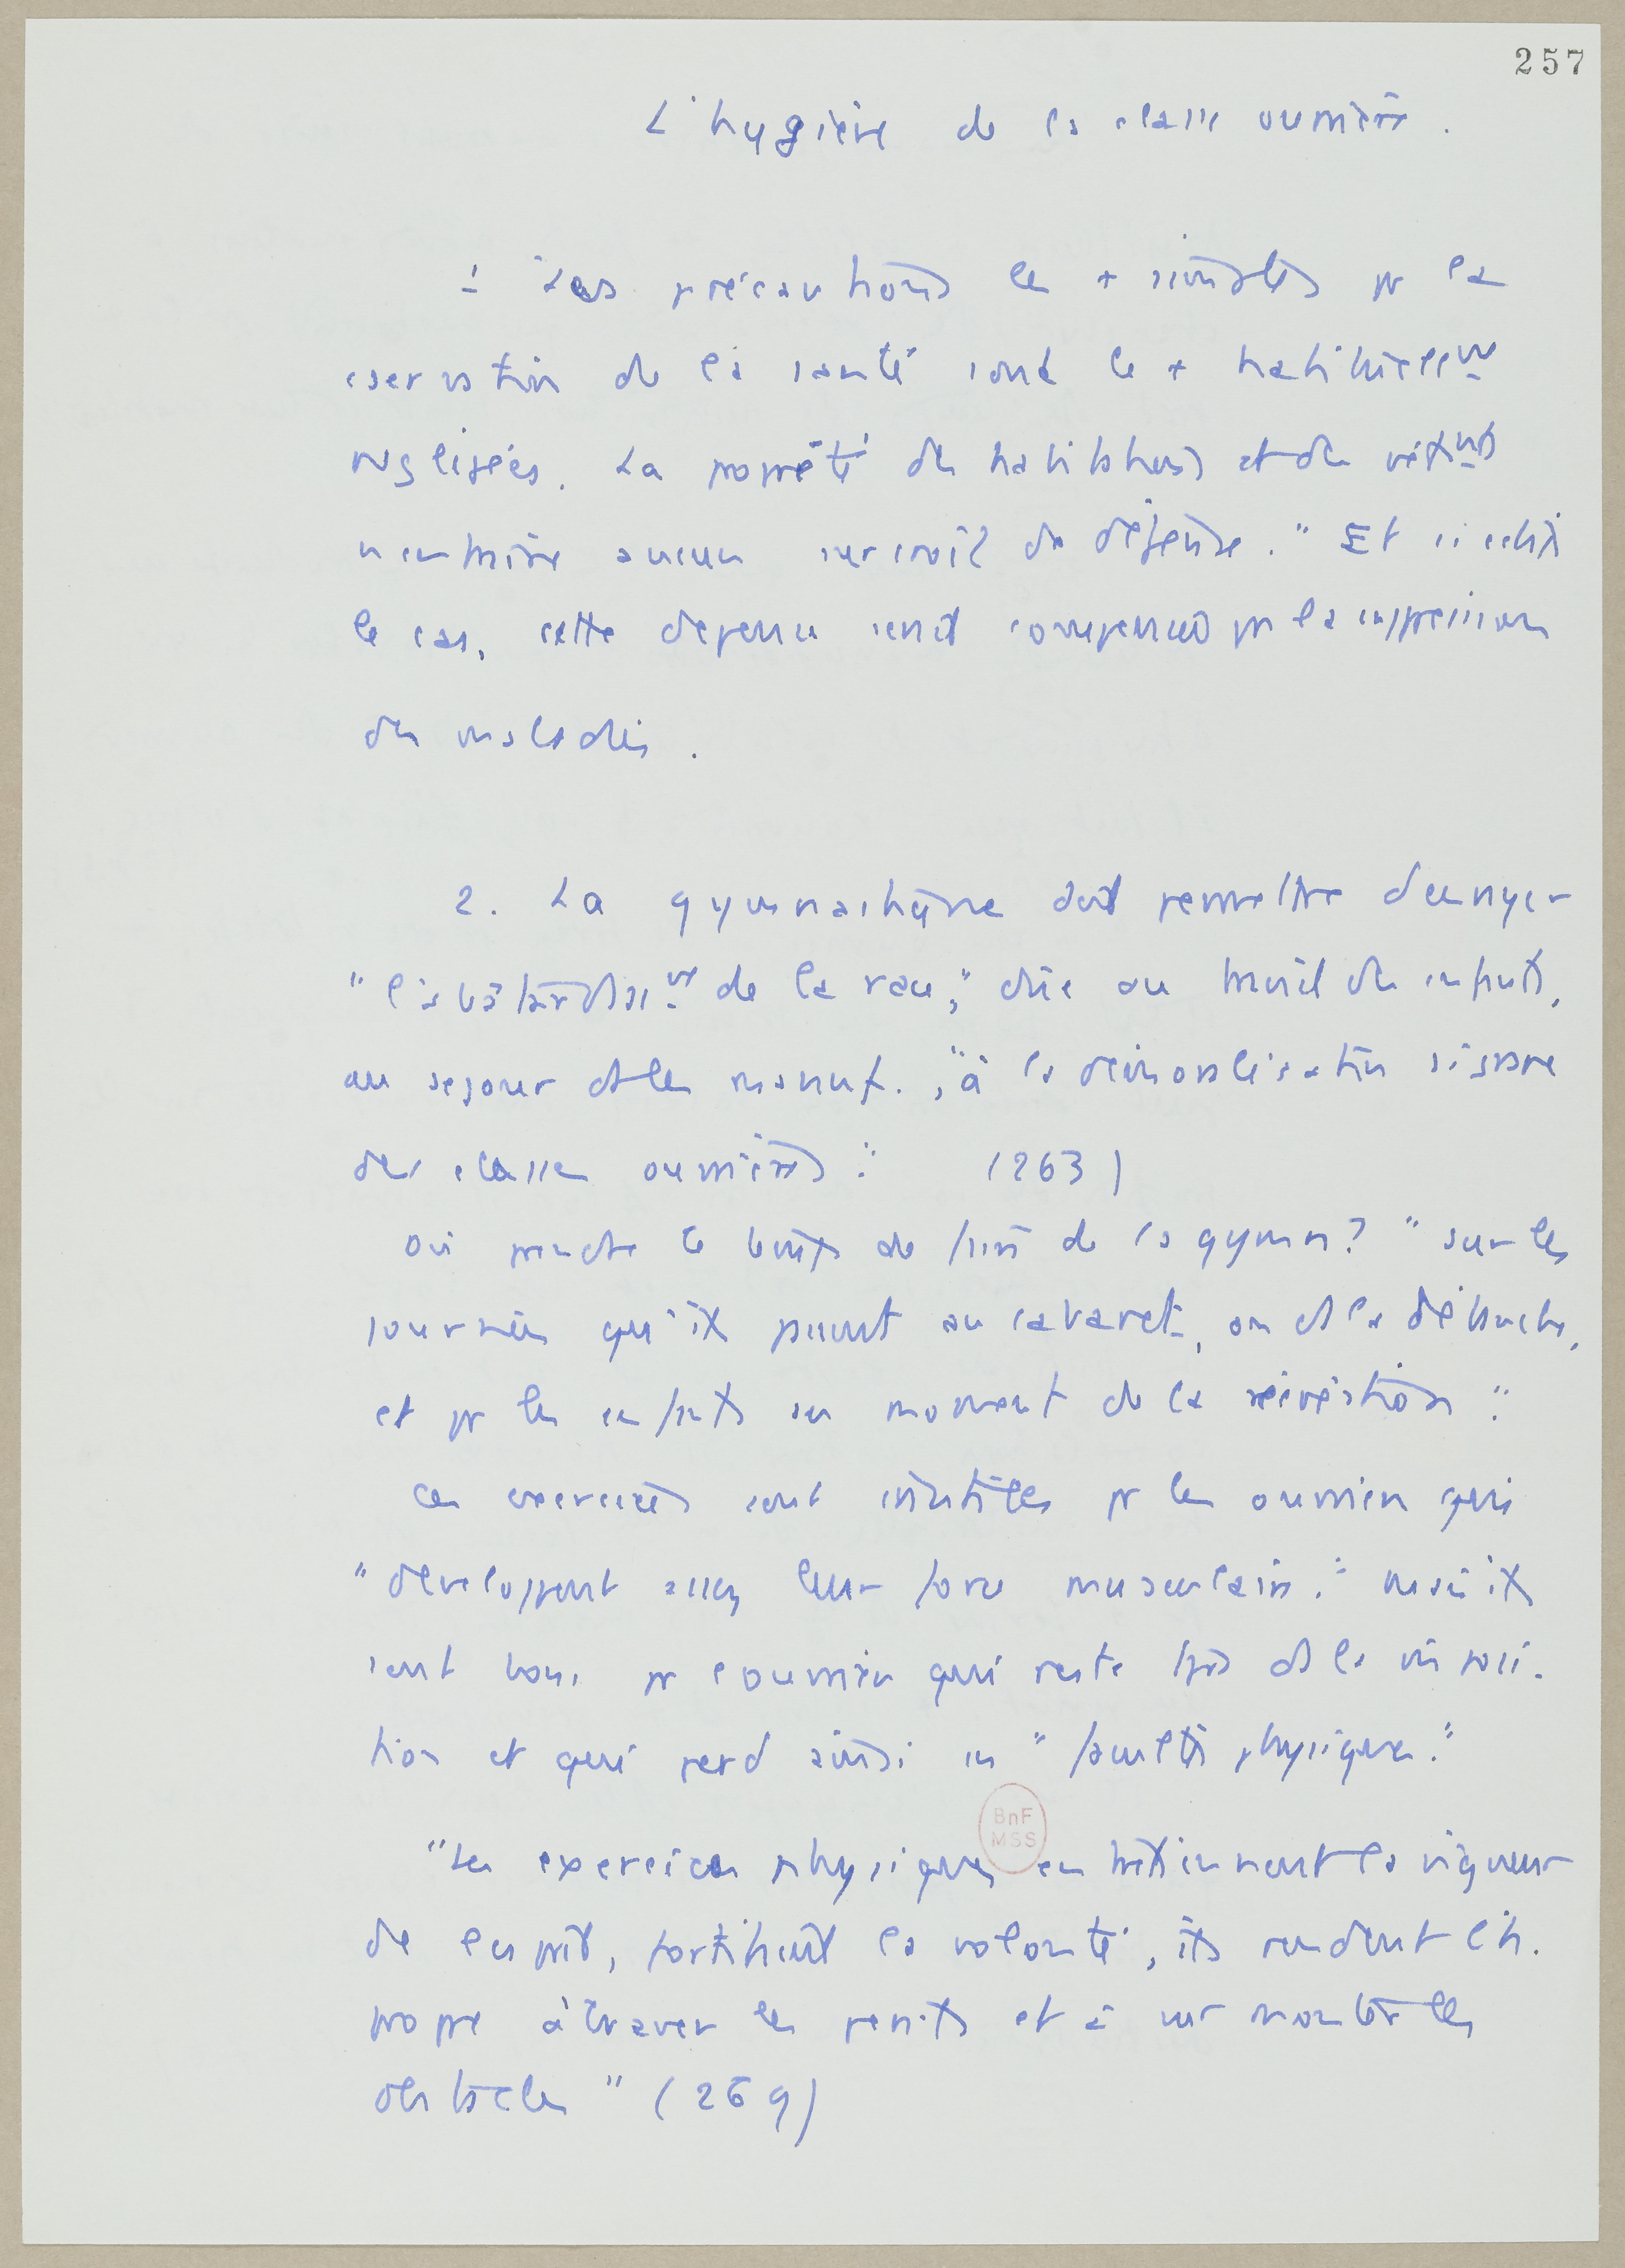 257
L'hygiène de la classe ouvrière.
1 Les précautions les + simples pr la
cservation de la santé sont les + habituellemt
négligées. La propreté des habitations et des vêtmts
n'entraîne aucun surcroît de dépense." Et si c'était
le cas, cette dépense serait compensée par la suppression
des maladies.
2. La gymnastique doit permettre d'enrayer
"l'abâtardissemt de la race", due au travail des enfants,
au séjour ds les manuf., "à la démoralisation
des classes ouvrières". (263)
Où prendre le temps de faire de la gymn? "sur les
journées qu'ils passent au cabaret, ou ds la débauche,
et pr les enfants au moment de la récréation".
Ces exercices sont inutiles pr les ouvriers qui
"développent assez leur force musculaire". mais ils
sont bons pr l'ouvrier qui reste ds la m posi-
tion et qui perd ainsi ses "facultés physiques".
"Les exercices physiques entretiennent la vigueur
de l'esprit, fortifient la volonté, ils rendent l'h.
propre à braver les périls et à surmonter les
obstacles" (269)
BnF
MSS